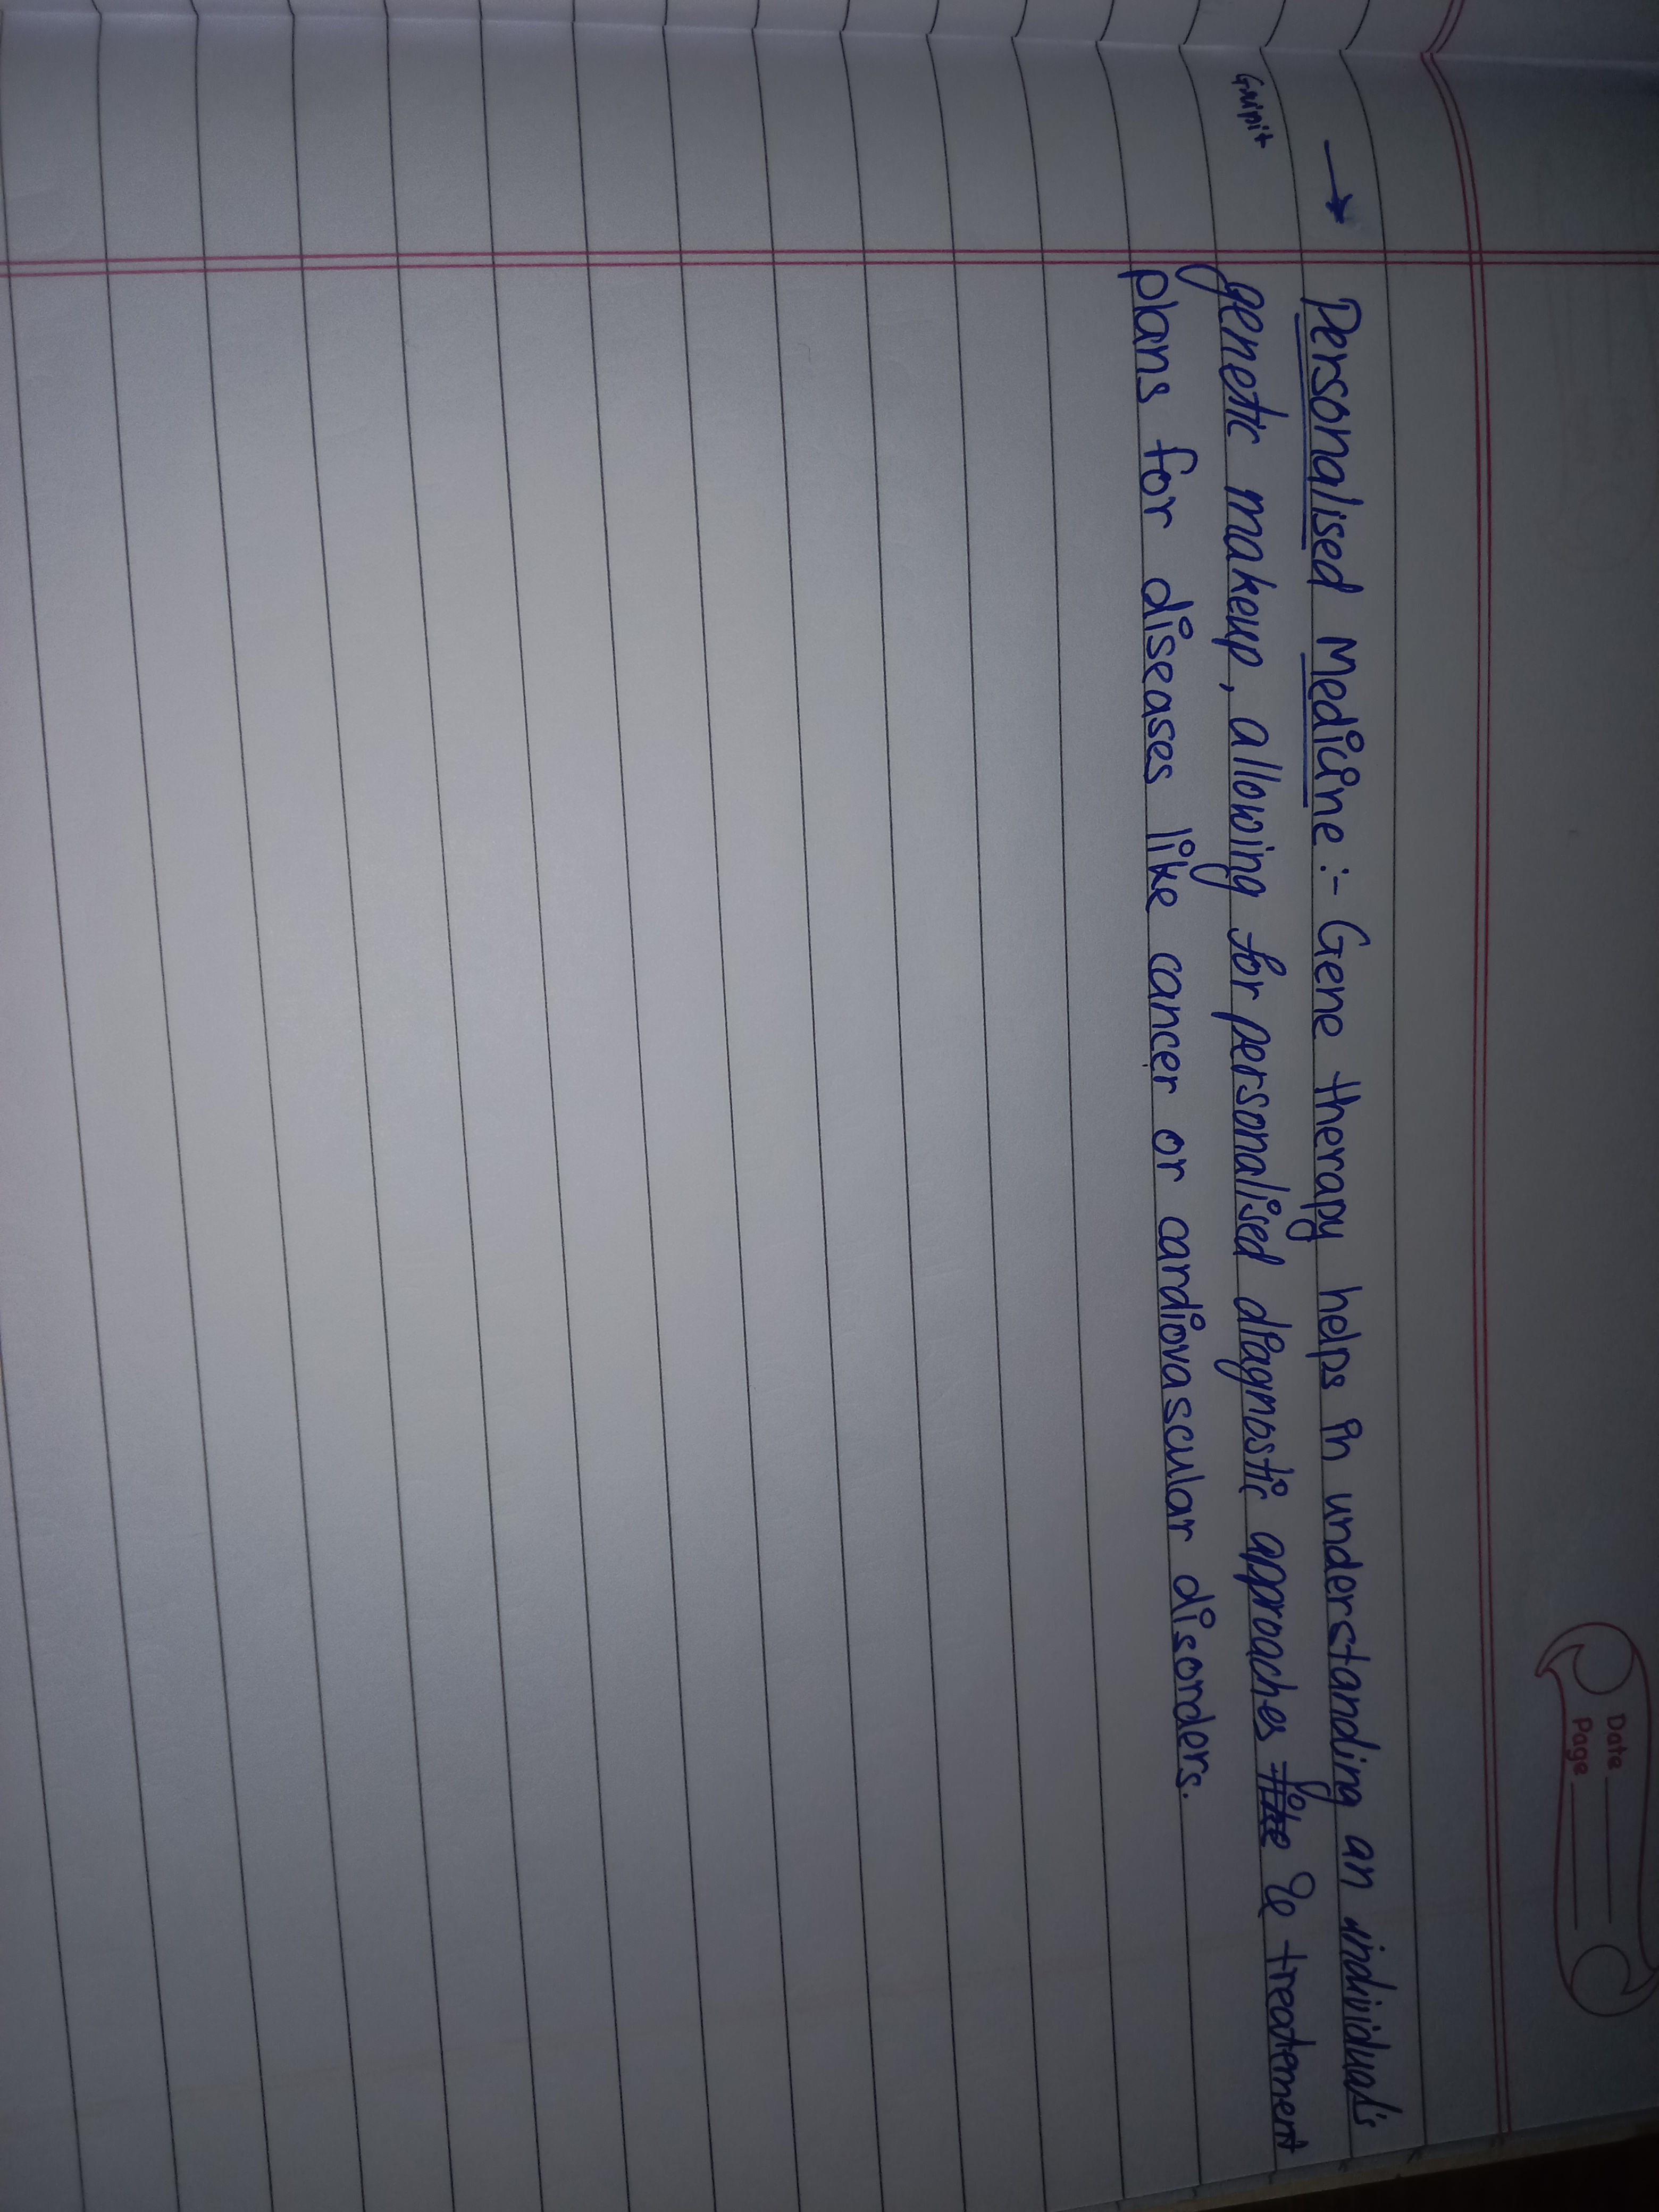 Date
Page
→ Personalised Medicine :- Gene therapy helps in understanding an individual's
genetic makeup, allowing for personalised diagnostic approaches & treatement
plans for diseases like cancer or cardiovascular disorders.